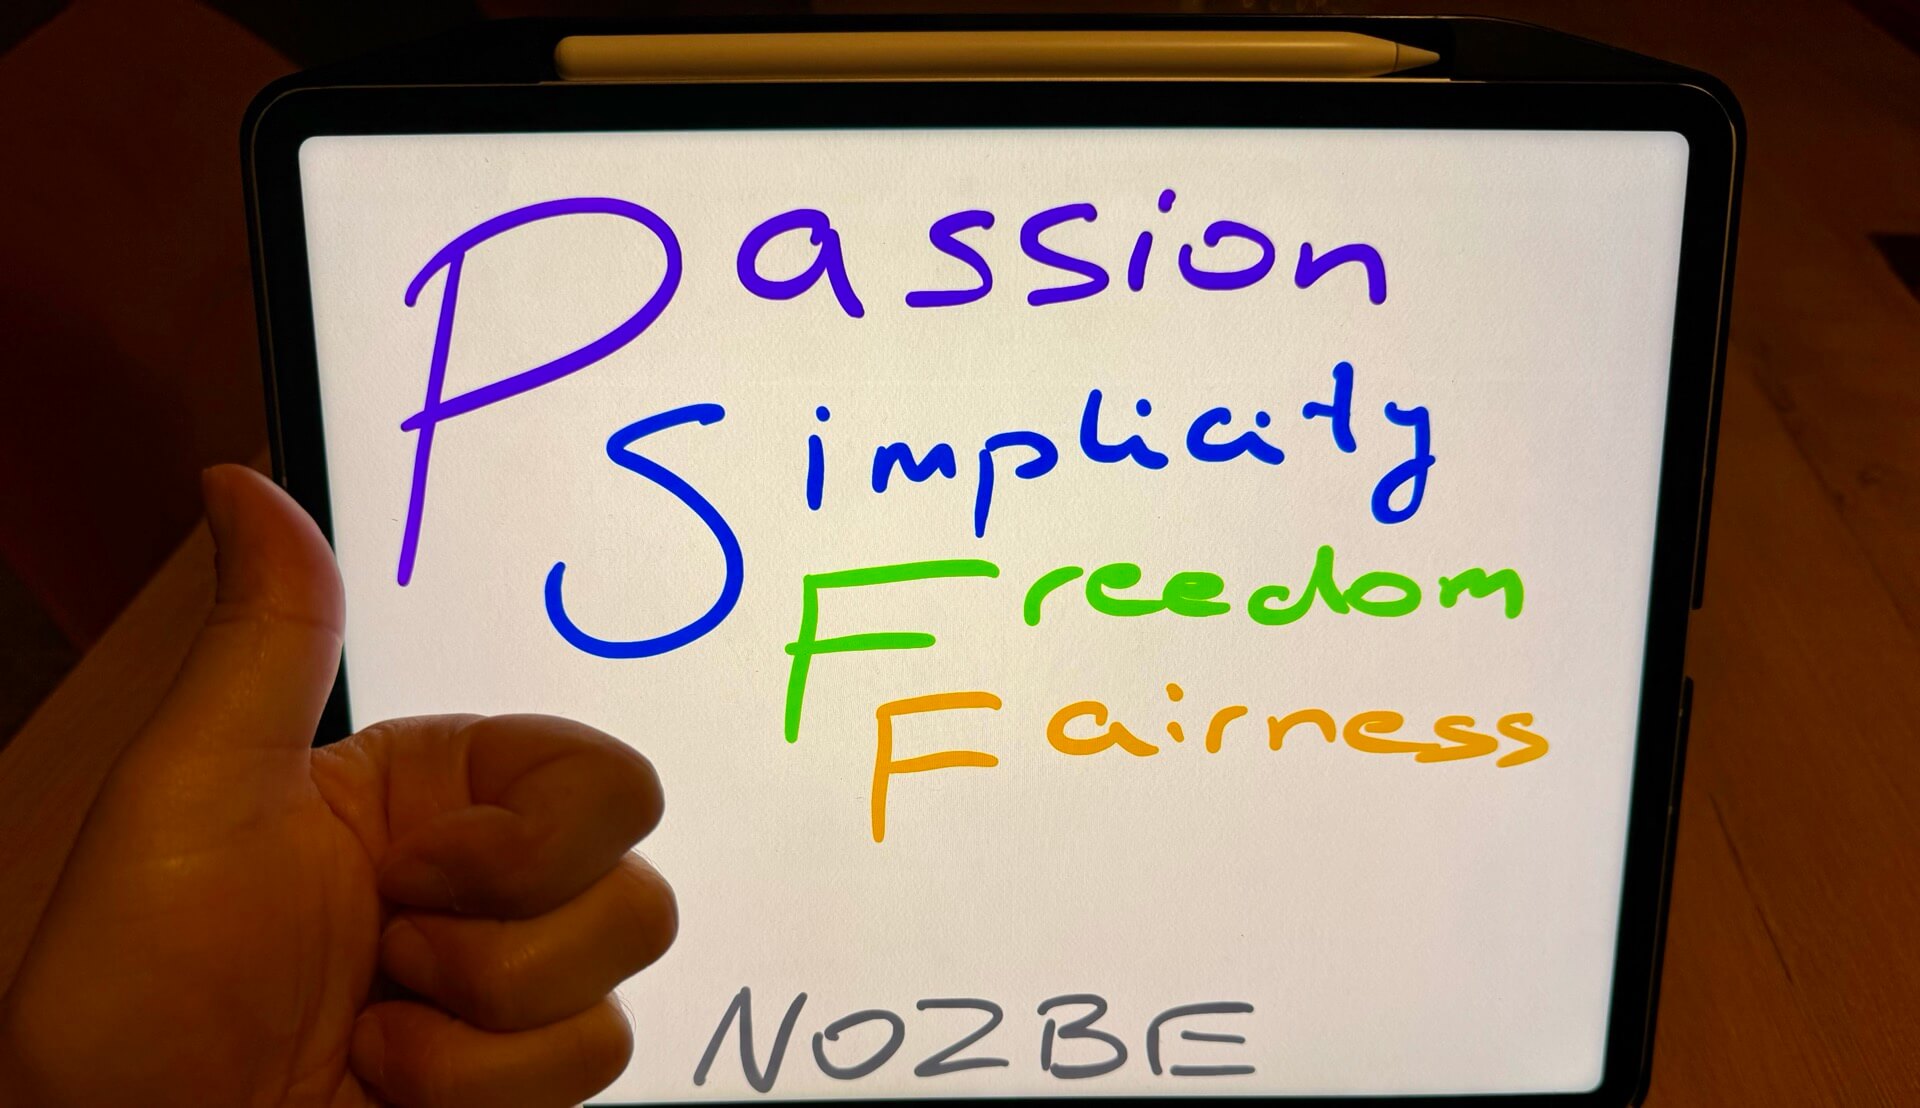 Passion
Simplicity
Freedom
Fairness
NOZBE